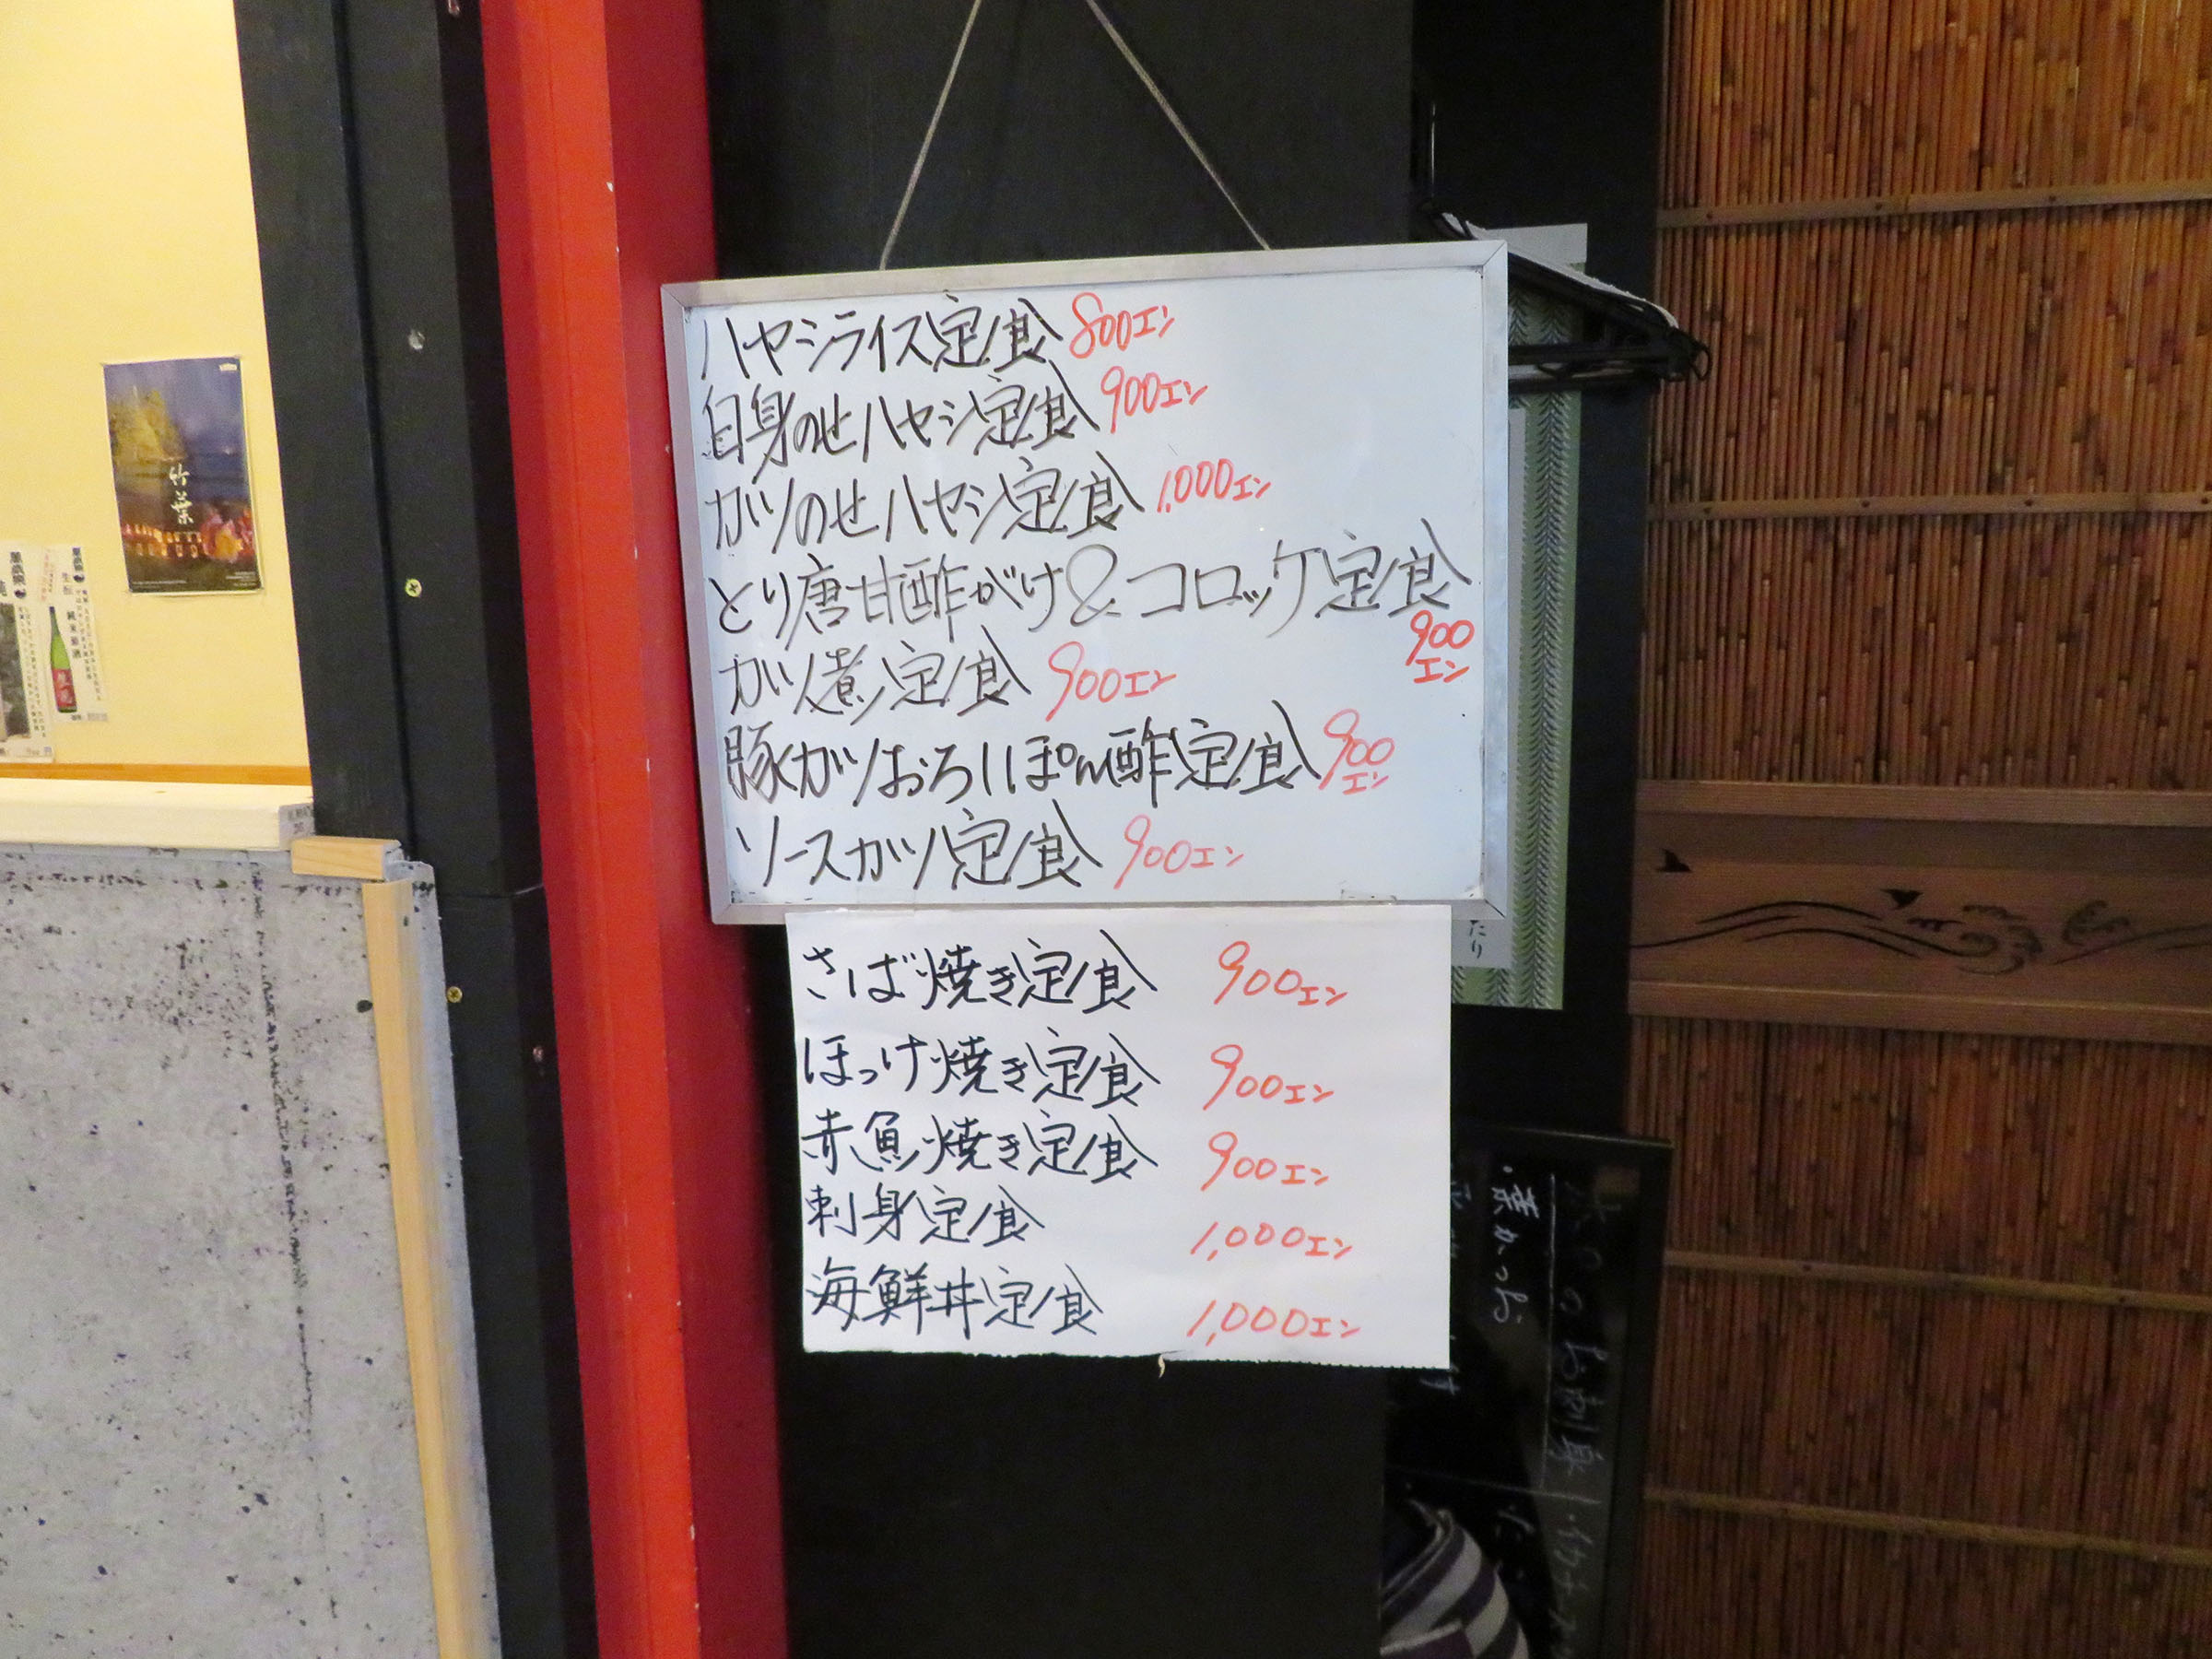 ハヤシライス定食 800エン
白身のせハヤシ定食 900エン
カツのせハヤシ定食 1,000エン
とり唐甘酢がけ&コロッケ定食
900
エン
カツ煮定食 900エン
豚カツおろしぽん酢定食 900
エン
ソースカツ定食 900エン
さば焼き定食 900エン
ほっけ焼き定食 900エン
赤魚焼き定食 900エン
刺身定食 1,000エン
海鮮丼定食 1,000エン
竹葉
生酛
純米原酒
たり